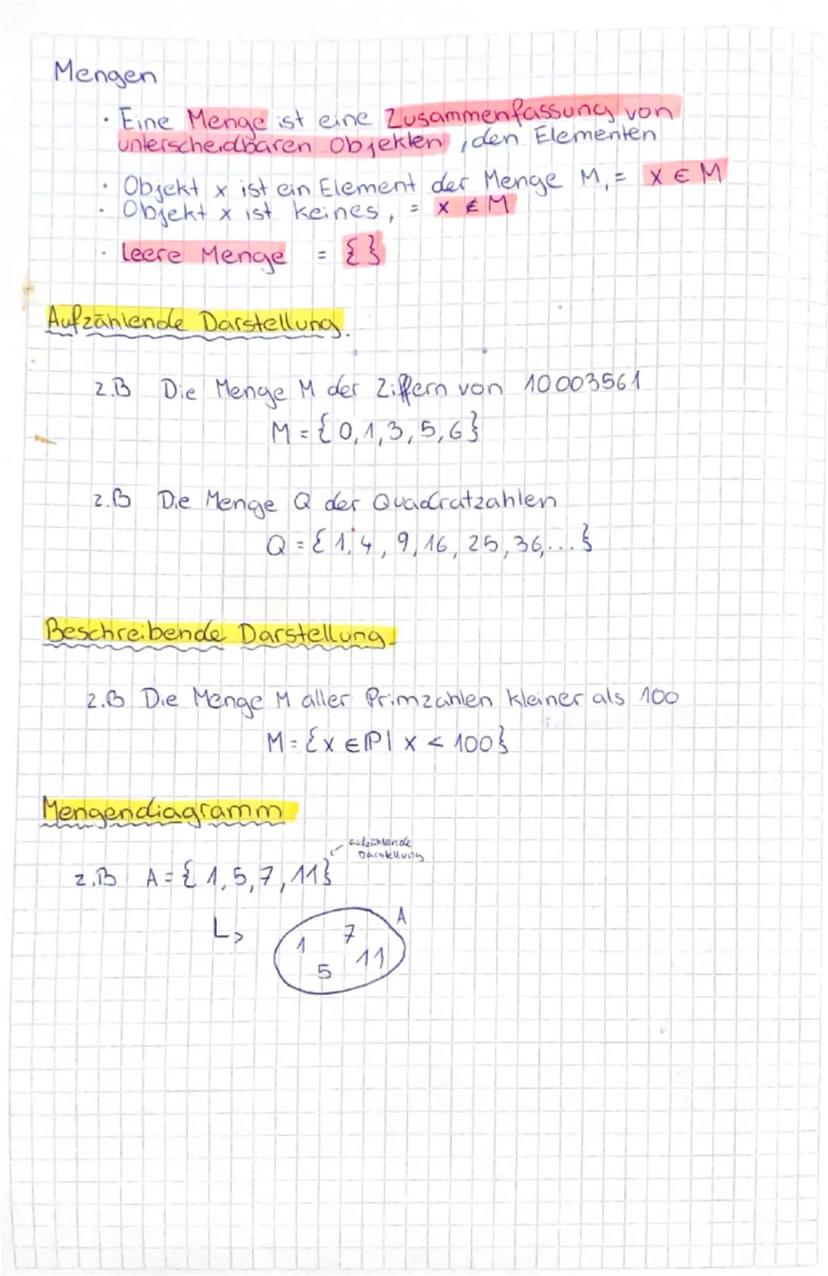 Mengen
· Eine Menge ist eine Zusammenfassung von
unterscheidbaren Objekten, den Elementen
· Objekt x ist ein Element der Menge M, = x ∈ M
· Objekt x ist keines, = x ∉ M
· leere Menge = { }
Aufzählende Darstellung.
z.B Die Menge M der Ziffern von 10003561
M = {0,1,3,5,6}
z.B Die Menge Q der Quadratzahlen
Q = {1,4,9,16,25,36,...}
Beschreibende Darstellung
z.B Die Menge M aller Primzahlen kleiner als 100
M = {x ∈ ℙ | x < 100}
Mengendiagramm
aufzählende
Darstellung
z.B A = {1,5,7,11}
A
7
1
11
5